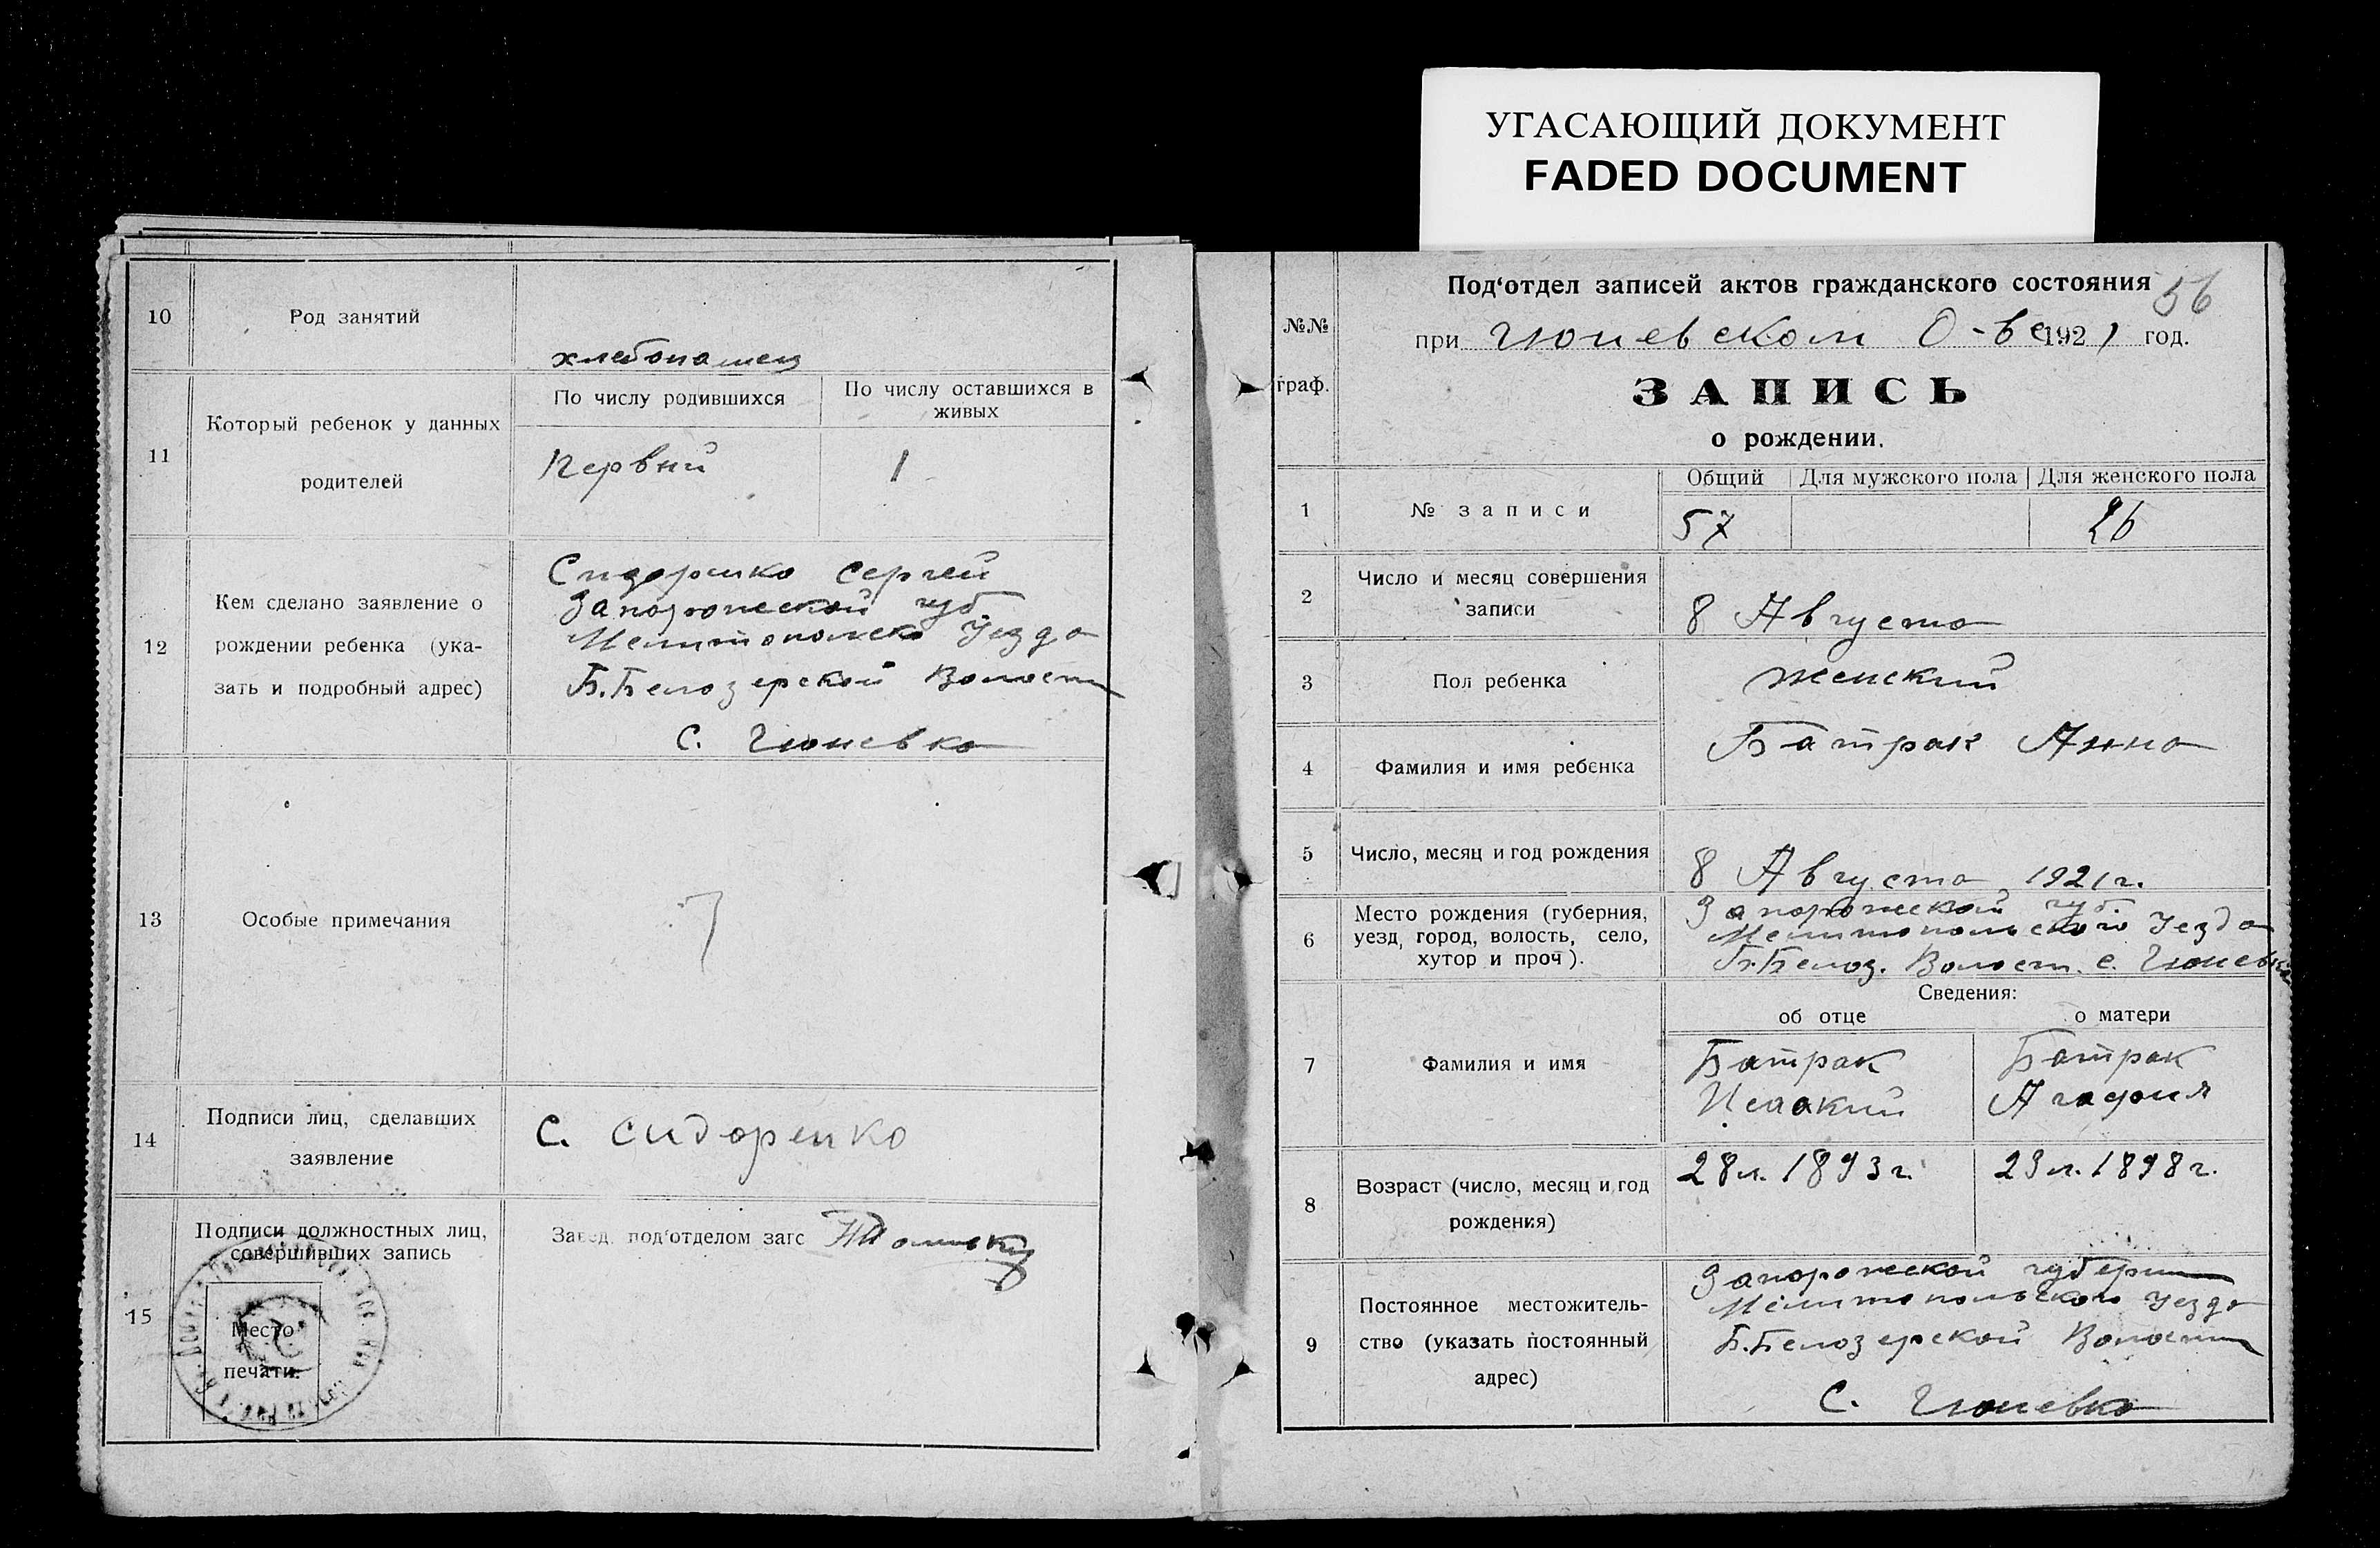 УГАСАЮЩИЙ ДОКУМЕНТ
FADED DOCUMENT
10
Род занятий
хлебопашец
11
Который ребенок у данных
родителей
По числу родившихся
По числу оставшихся в
живых
Первый
1
12
Кем сделано заявление о
рождении ребенка (ука-
зать и подробный адрес)
Сидоренко Сергей
Запорожской губ.
Мелитопольско Уезда
Б. Белозерской Волости
С. Гюневка
13
Особые примечания
14
Подписи лиц, сделавших
заявление
С. Сидоренко
15
Подписи должностных лиц,
совершивших запись
Место
печати.
Завед. под'отделом загс
№№
граф.
Под'отдел записей актов гражданского состояния
56
при Гюневском О-ве 1921 год.
ЗАПИСЬ
о рождении.
1
№ записи
Общий
Для мужского пола
Для женского пола
57
26
2
Число и месяц совершения
записи
8 Августа
3
Пол ребенка
женский
4
Фамилия и имя ребенка
Батрак Анна
5
Число, месяц и год рождения
8 Августа 1921 г.
6
Место рождения (губерния,
уезд, город, волость, село,
хутор и проч).
Запорожской губ.
Мелитопольского Уезда
Б. Белоз. Волост. с. Гюневка
Сведения:
об отце
о матери
7
Фамилия и имя
Батрак
Исаакий
Батрак
Агафия
8
Возраст (число, месяц и год
рождения)
28 л. 1893 г.
23 л. 1898 г.
9
Постоянное местожитель-
ство (указать постоянный
адрес)
Запорожской губернии
Мелитопольского Уезда
Б. Белозерской Волости
С. Гюневка